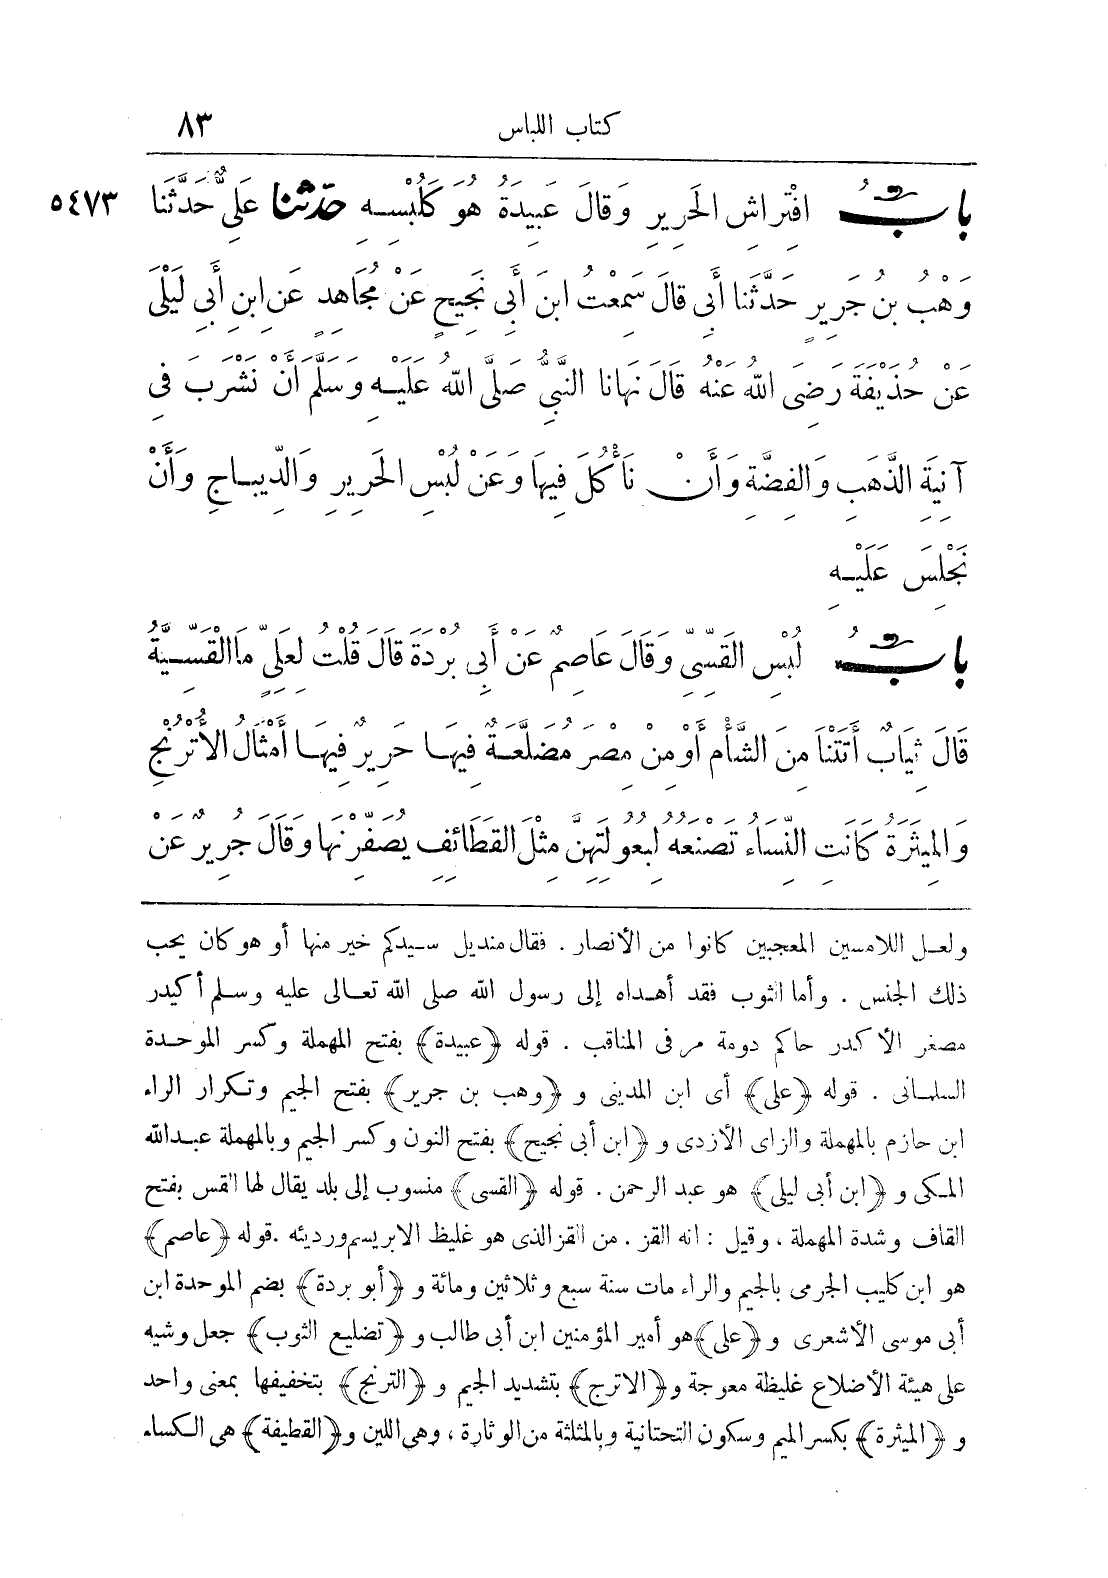 كتاب اللباس ٨٣
بابُ افْتِراشِ الحَرِيرِ وَقالَ عَبِيدَةُ هُوَ كَلُبْسِهِ حَدَّثنا عَلِيٌّ حَدَّثَنا ٥٤٧٣
وَهْبُ بنُ جَرِيرٍ حَدَّثَنا أَبِى قالَ سَمِعْتُ ابنَ أَبِى نَجِيحٍ عَنْ مُجَاهِدٍ عَنِ ابنِ أَبِي لَيْلَى
عَنْ حُذَيْفَةَ رَضِىَ اللهُ عَنْهُ قالَ نَهانا النَّبِىُّ صَلَّى اللهُ عَلَيْهِ وسَلَّمَ أَنْ نَشْرَبَ فى
آنِيَةِ الذَّهَبِ وَالفِضَّةِ وَأَنْ نَأْكُلَ فِيهَا وَعَنْ لُبْسِ الحَرِيرِ وَالدِّيباجِ وَأَنْ
نَجْلِسَ عَلَيْهِ
بابُ لُبْسِ القَسِّىِّ وَقَالَ عَاصِمٌ عَنْ أَبِى بُرْدَةَ قَالَ قُلْتُ لِعَلِىٍّ ما القَسِّيَّةُ
قَالَ ثِيَابٌ أَتَتْنَا مِنَ الشَّأْمِ أَوْ مِنْ مِصْرَ مُضَلَّعَةٌ فِيهَا حَرِيرٌ فِيهَا أَمْثَالُ الأُتْرُنْجِ
وَالمِيثَرَةُ كَانَتِ النِّسَاءُ تَصْنَعُهُ لِبُعُولَتِهِنَّ مِثْلَ القَطَائِفِ يُصَفِّرْنَهَا وَقَالَ جَرِيرٌ عَنْ
ولعل اللامسين المعجبين كانوا من الأنصار . فقال منديل سيدكم خير منها أو هو كان يحب
ذلك الجنس . وأما الثوب فقد أهداه إلى رسول الله صلى الله تعالى عليه وسلم أكيدر
مصغر الأكدر حاكم دومة مر فى المناقب . قوله ﴿عبيدة﴾ بفتح المهملة وكسر الموحدة
السلمانى . قوله ﴿على﴾ أى ابن المدينى و ﴿وهب بن جرير﴾ بفتح الجيم وتكرار الراء
ابن حازم بالمهملة والزاى الأزدى و ﴿ابن أبى نجيح﴾ بفتح النون وكسر الجيم وبالمهملة عبد الله
المكى و ﴿ابن أبى ليلى﴾ هو عبد الرحمن . قوله ﴿القسى﴾ منسوب إلى بلد يقال لها القس بفتح
القاف وشدة المهملة ، وقيل : انه القز . من القز الذى هو غليظ الابريسم ورديئه . قوله ﴿عاصم﴾
هو ابن كليب الجرمى بالجيم والراء مات سنة سبع وثلاثين ومائة و ﴿أبو بردة﴾ بضم الموحدة ابن
أبى موسى الأشعرى و ﴿على﴾ هو أمير المؤمنين ابن أبى طالب و ﴿تضليع الثوب﴾ جعل وشيه
على هيئة الأضلاع غليظة معوجة و ﴿الاترج﴾ بتشديد الجيم و ﴿الترنج﴾ بتخفيفها بمعنى واحد
و ﴿الميثرة﴾ بكسر الميم وسكون التحتانية وبالمثلثة من الوثارة ، وهى اللين و ﴿القطيفة﴾ هى الكساء